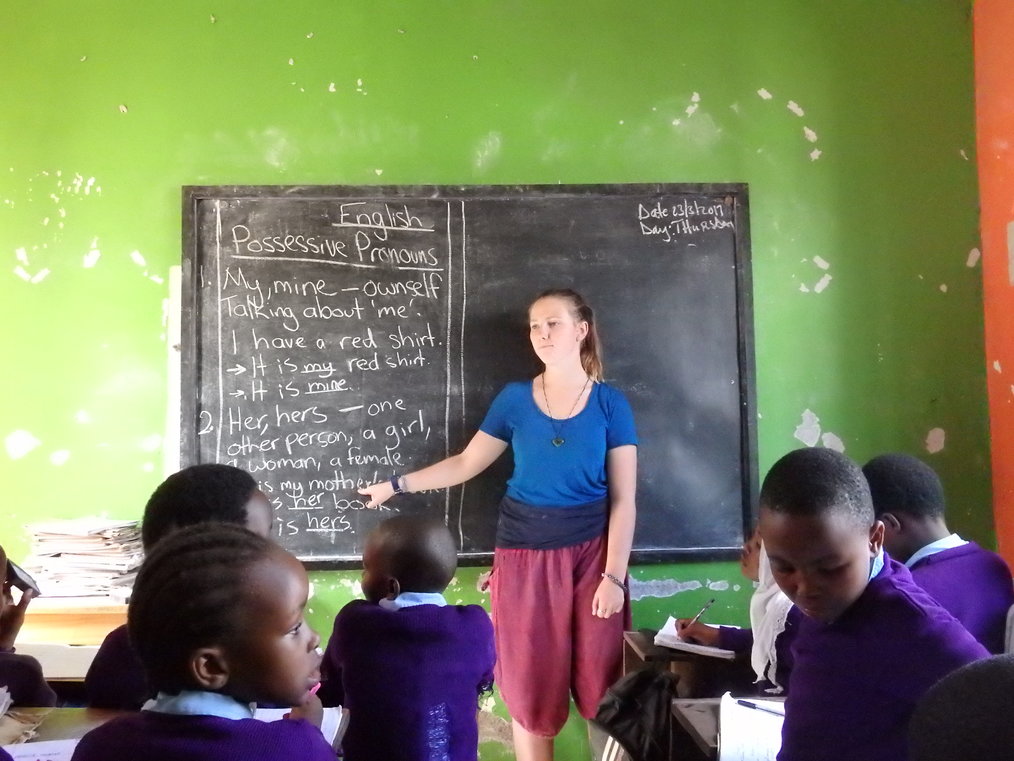 English
Possessive Pronouns
1. My, mine – ownself
Talking about 'me'.
I have a red shirt.
→ It is my red shirt.
→ It is mine.
2. Her, hers – one
other person, a girl,
a woman, a female.
is my mother's
is her book.
is hers.
Date 23/3/2017
Day: Thursday